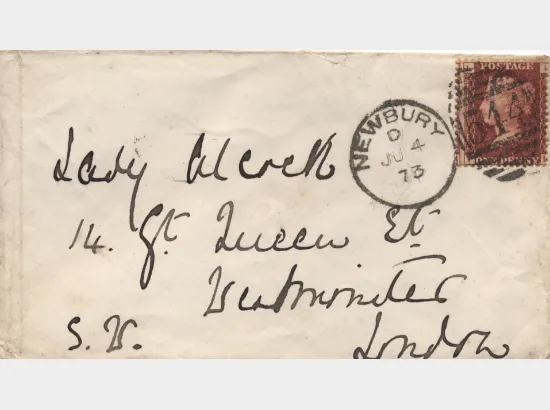 POSTAGE
ONE PENNY
NEWBURY
D
JU 4
73
Lady Alcock
14. Gt. Queen St.
Westminster
S.W.
London